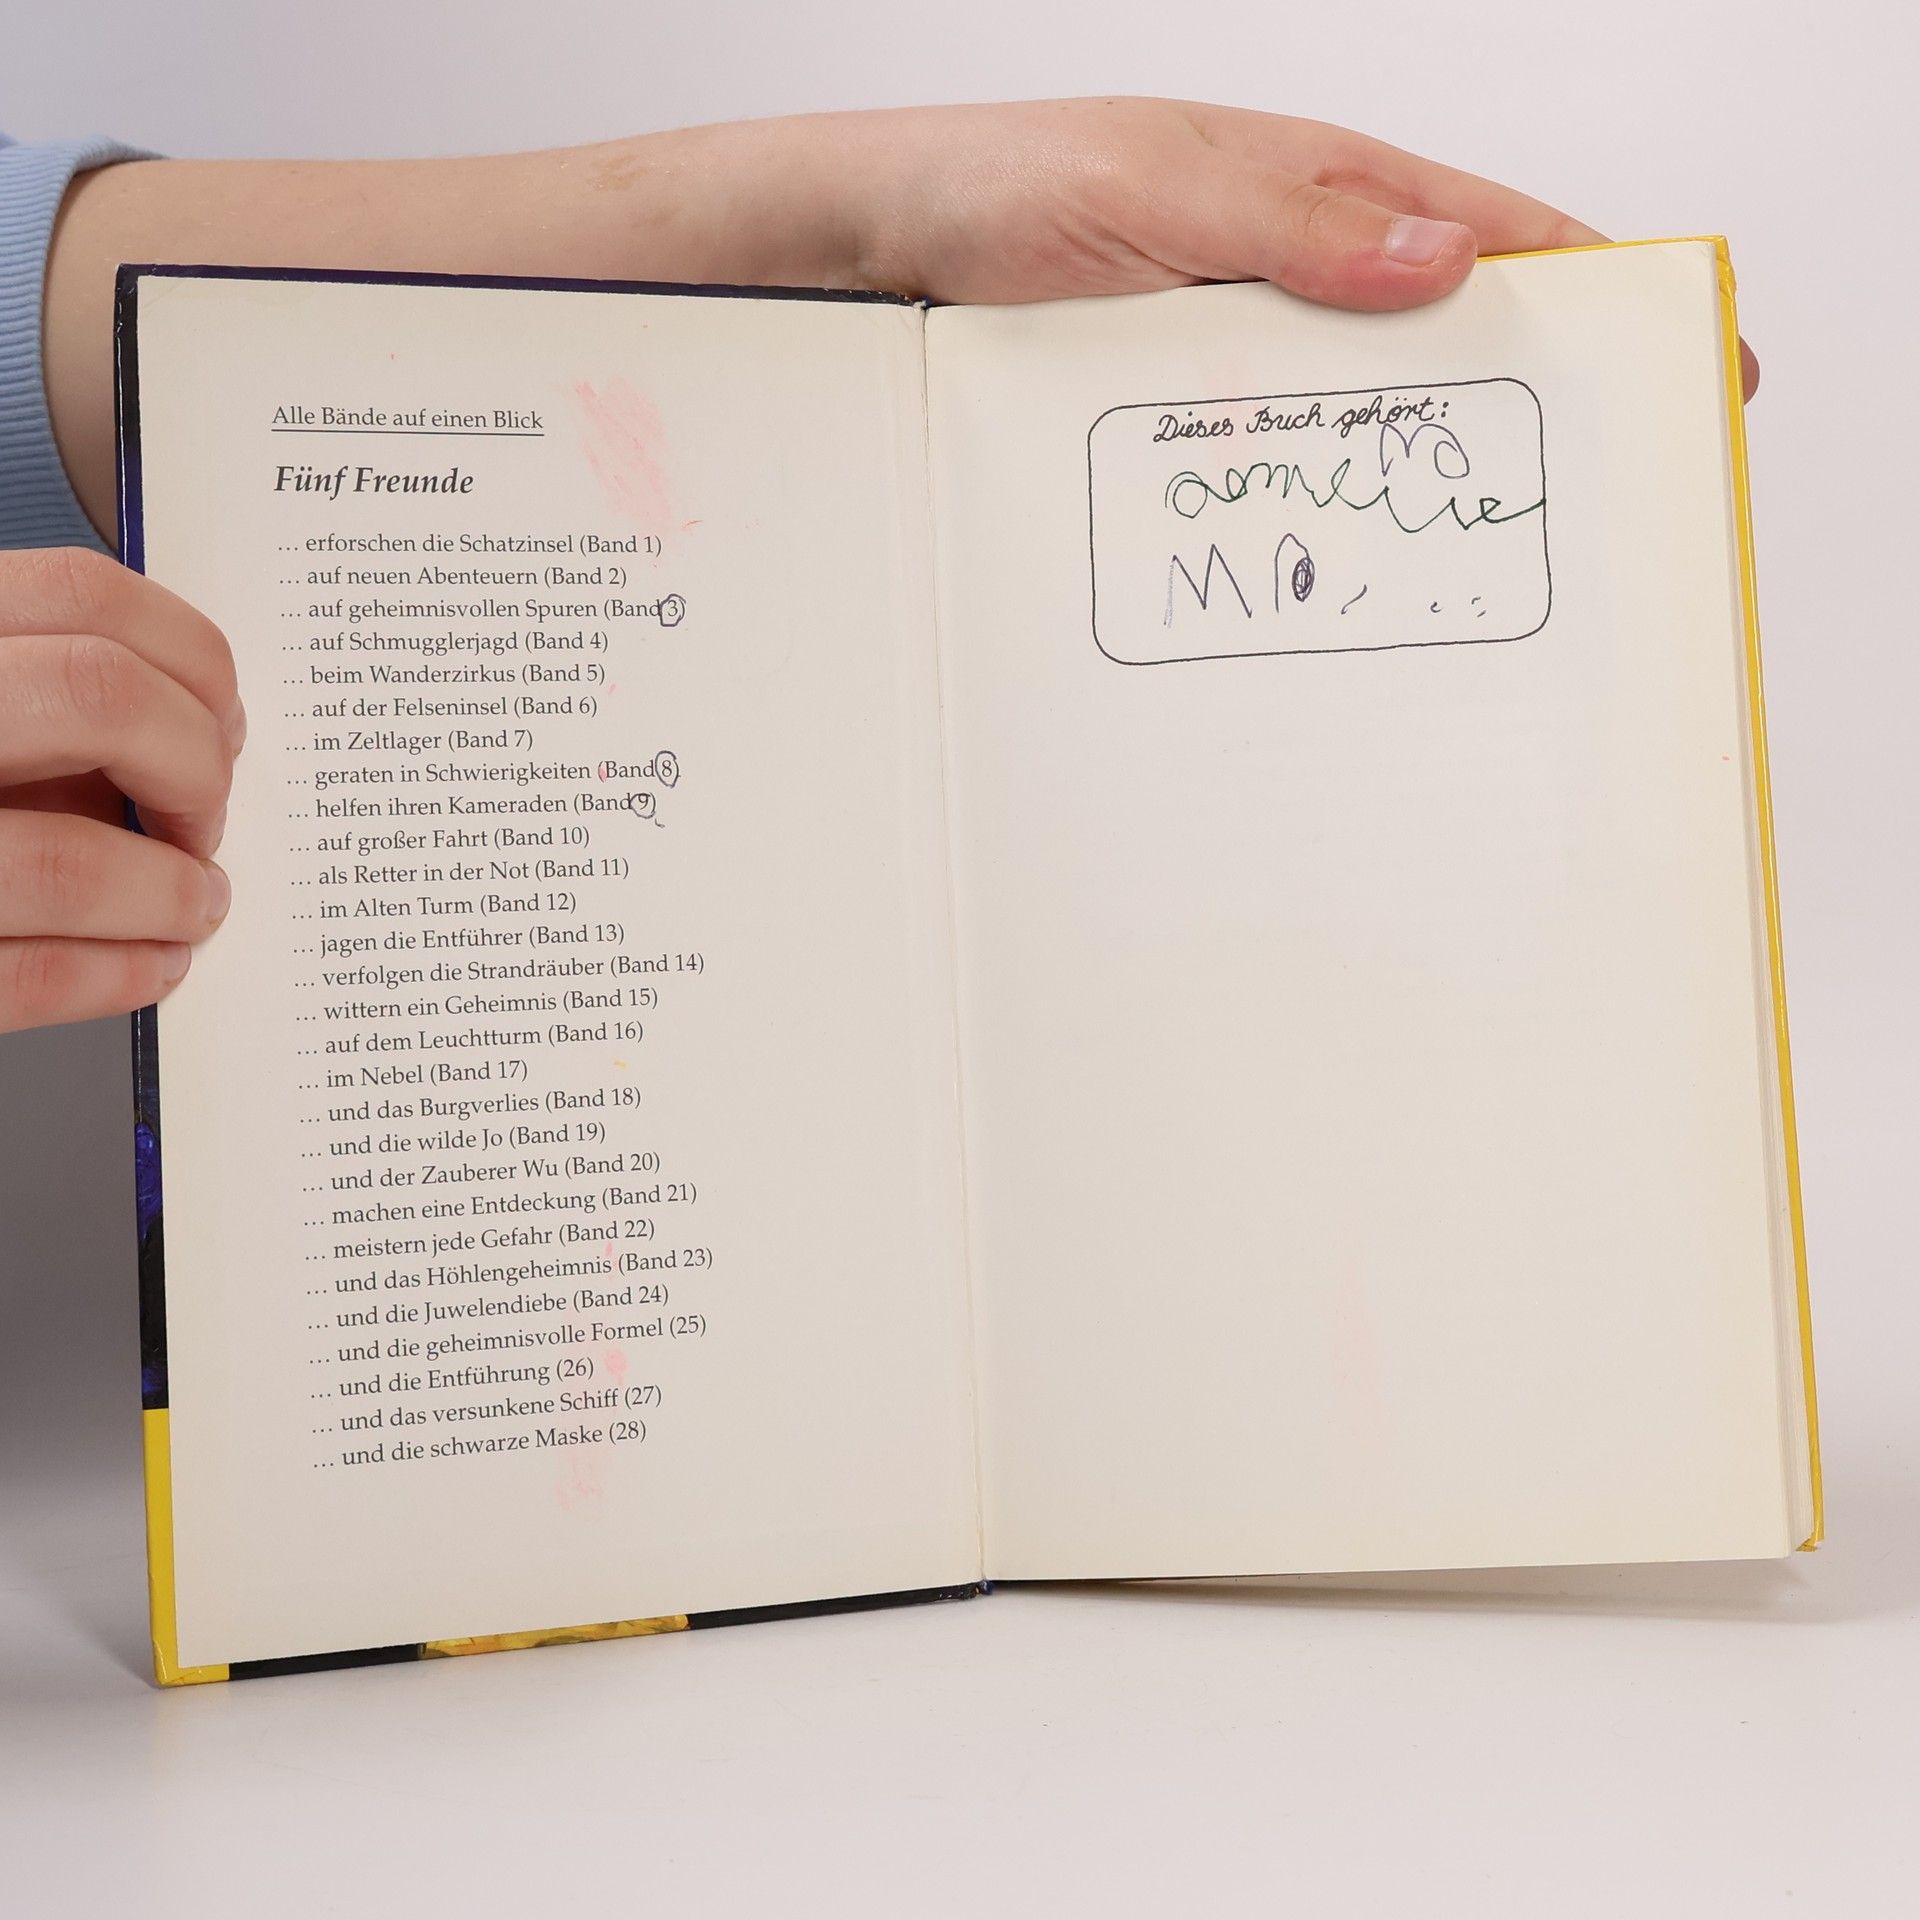 Alle Bände auf einen Blick
Fünf Freunde
… erforschen die Schatzinsel (Band 1)
… auf neuen Abenteuern (Band 2)
… auf geheimnisvollen Spuren (Band 3)
… auf Schmugglerjagd (Band 4)
… beim Wanderzirkus (Band 5)
… auf der Felseninsel (Band 6)
… im Zeltlager (Band 7)
… geraten in Schwierigkeiten (Band 8)
… helfen ihren Kameraden (Band 9)
… auf großer Fahrt (Band 10)
… als Retter in der Not (Band 11)
… im Alten Turm (Band 12)
… jagen die Entführer (Band 13)
… verfolgen die Strandräuber (Band 14)
… wittern ein Geheimnis (Band 15)
… auf dem Leuchtturm (Band 16)
… im Nebel (Band 17)
… und das Burgverlies (Band 18)
… und die wilde Jo (Band 19)
… und der Zauberer Wu (Band 20)
… machen eine Entdeckung (Band 21)
… meistern jede Gefahr (Band 22)
… und das Höhlengeheimnis (Band 23)
… und die Juwelendiebe (Band 24)
… und die geheimnisvolle Formel (25)
… und die Entführung (26)
… und das versunkene Schiff (27)
… und die schwarze Maske (28)
Dieses Buch gehört: